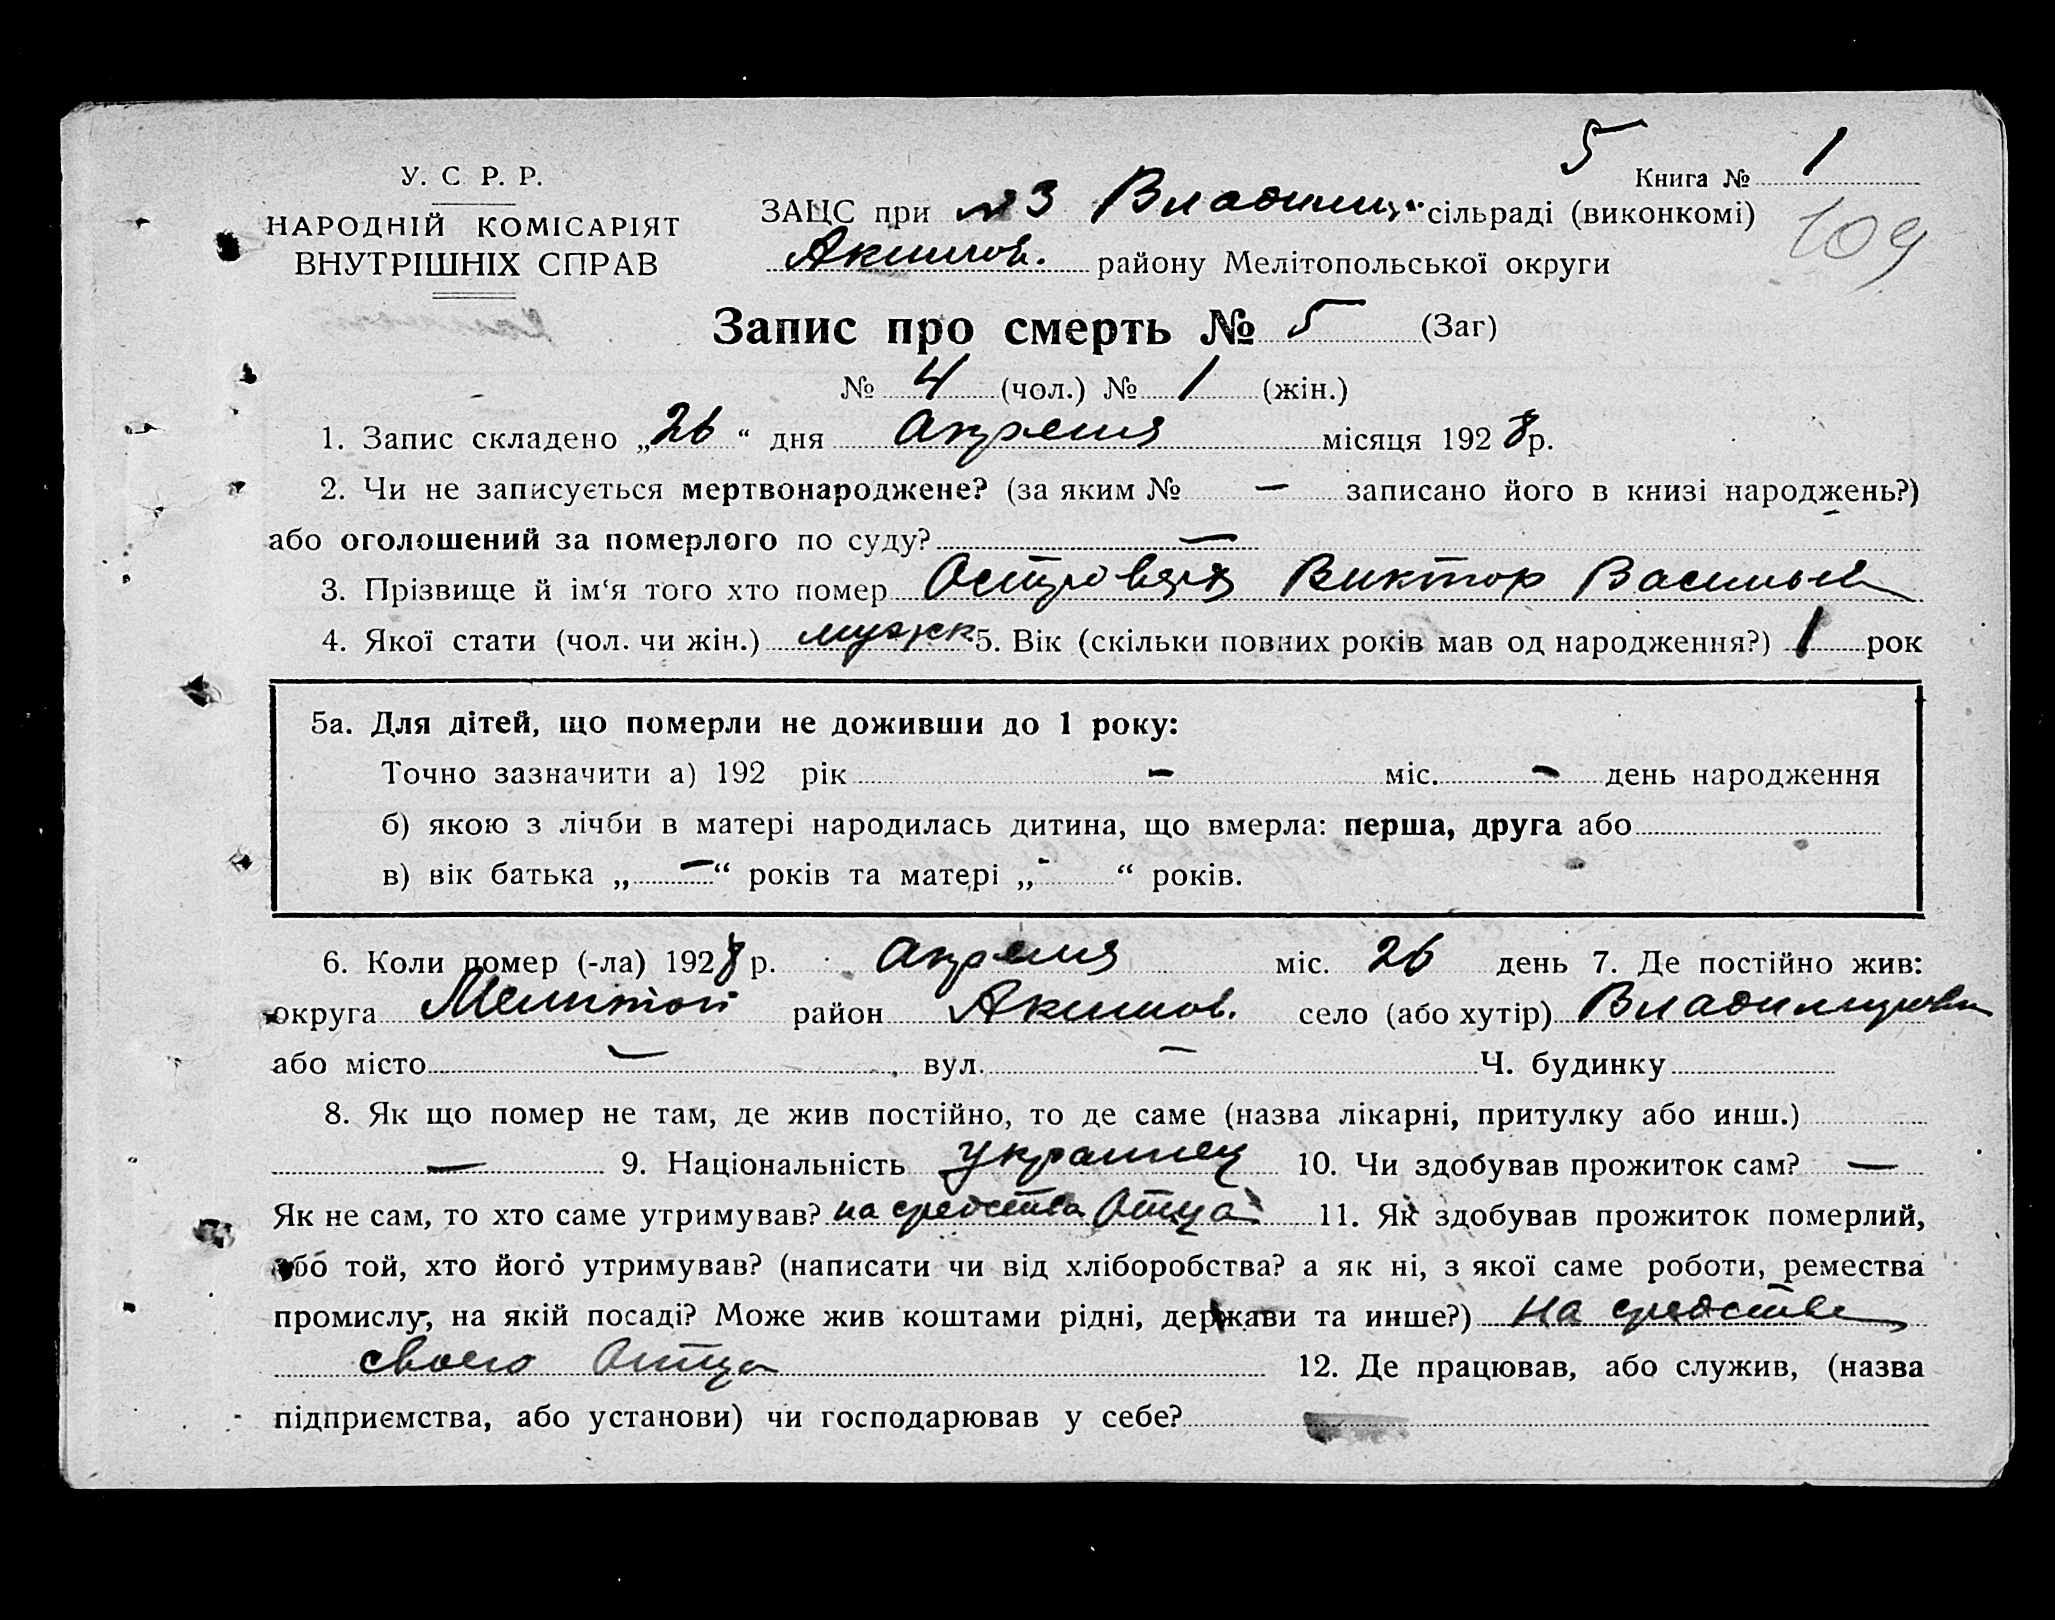 5 Книга № 1
У. С. Р. Р.
НАРОДНІЙ КОМІСАРІЯТ
ВНУТРІШНІХ СПРАВ
ЗАЦС при №3 Владимир. сільраді (виконкомі)
109
Акимов. району Мелітопольської округи
Запис про смерть № 5 (Заг)
№ 4 (чол.) № 1 (жін.)
1. Запис складено „26“ дня Апреля місяця 1928 р.
2. Чи не записується мертвонароджене? (за яким № — записано його в книзі народжень?)
або оголошений за померлого по суду? —
3. Прізвище й ім‘я того хто помер Виктор Васильев
4. Якої стати (чол. чи жін.) мужк 5. Вік (скільки повних років мав од народження?) 1 рок
5а. Для дітей, що померли не доживши до 1 року:
Точно зазначити а) 192 рік — міс. — день народження
б) якою з лічби в матері народилась дитина, що вмерла: перша, друга або
в) вік батька „—“ років та матері „-“ років.
6. Коли помер (-ла) 1928 р. Апреля міс. 26 день 7. Де постійно жив:
округа Мелитоп район Акимов. село (або хутір) Владимировк
або місто — , вул. — Ч. будинку
8. Як що помер не там, де жив постійно, то де саме (назва лікарні, притулку або инш.)
— 9. Національність украинец 10. Чи здобував прожиток сам? —
Як не сам, то хто саме утримував? на средства Отца 11. Як здобував прожиток померлий,
або той, хто його утримував? (написати чи від хліборобства? а як ні, з якої саме роботи, ремества
промислу, на якій посаді? Може жив коштами рідні, держави та инше?) на средства
своего Отца 12. Де працював, або служив, (назва
підприємства, або установи) чи господарював у себе?